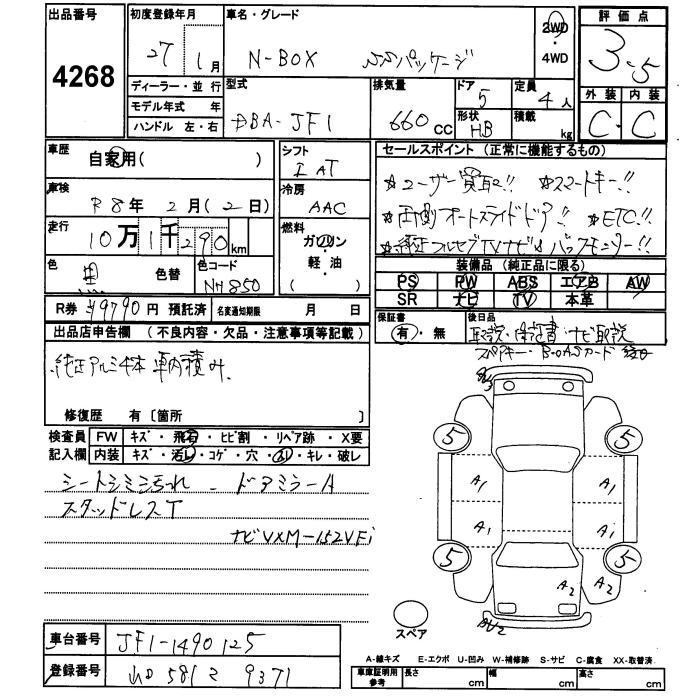 出品番号 初度登録年月 車名・グレード 評価点
4268
27 1月 N-BOX SSパッケージ 2WD ・ 4WD 3.5
ディーラー・並行 型式 排気量 ドア 定員 外装 内装
モデル年式 年 DBA-JF1 660cc 5 4人 C・C
ハンドル 左・右 形状 HB 積載 kg
車歴 自家用( ) シフト IAT セールスポイント (正常に機能するもの)
車検 R8年2月(2日) 冷房 AAC ☆ユーザー買取!! ☆スマートキー!!
走行 10万1千290km 燃料 ガソリン・軽・油( ) ☆両側オートスライドドア!! ☆ETC!!
☆純正フルセグTVナビ&バックモニター!!
色 黒 色替 色コード NH850 装備品 (純正品に限る)
PS PW ABS エアB AW
SR ナビ TV 本革
R券 ¥9790円 預託済 名変通知期限 月 日 保証書 有・無 後日品
取説・保証書・ナビ取説
スペアキー・B-CASカード
出品店申告欄 (不良内容・欠品・注意事項等記載)
純正アルミ4本 車内積み
修復歴 有 〔箇所 〕
検査員 FW キズ・飛石・ヒビ割・リペア跡・X要
記入欄 内装 キズ・汚レ・コゲ・穴・スレ・キレ・破レ
シートシミ汚れ - ドアミラーA
スタッドレスT
ナビVXM-152VFi
5 5
A1 A1
A1 A1
5 5
A2 A2
スペア
車台番号 JF1-1490125
登録番号 581 9371
A-線キズ E-エクボ U-凹み W-補修跡 S-サビ C-腐食 XX-取替済
車庫証明用参考 長さ cm 幅 cm 高さ cm